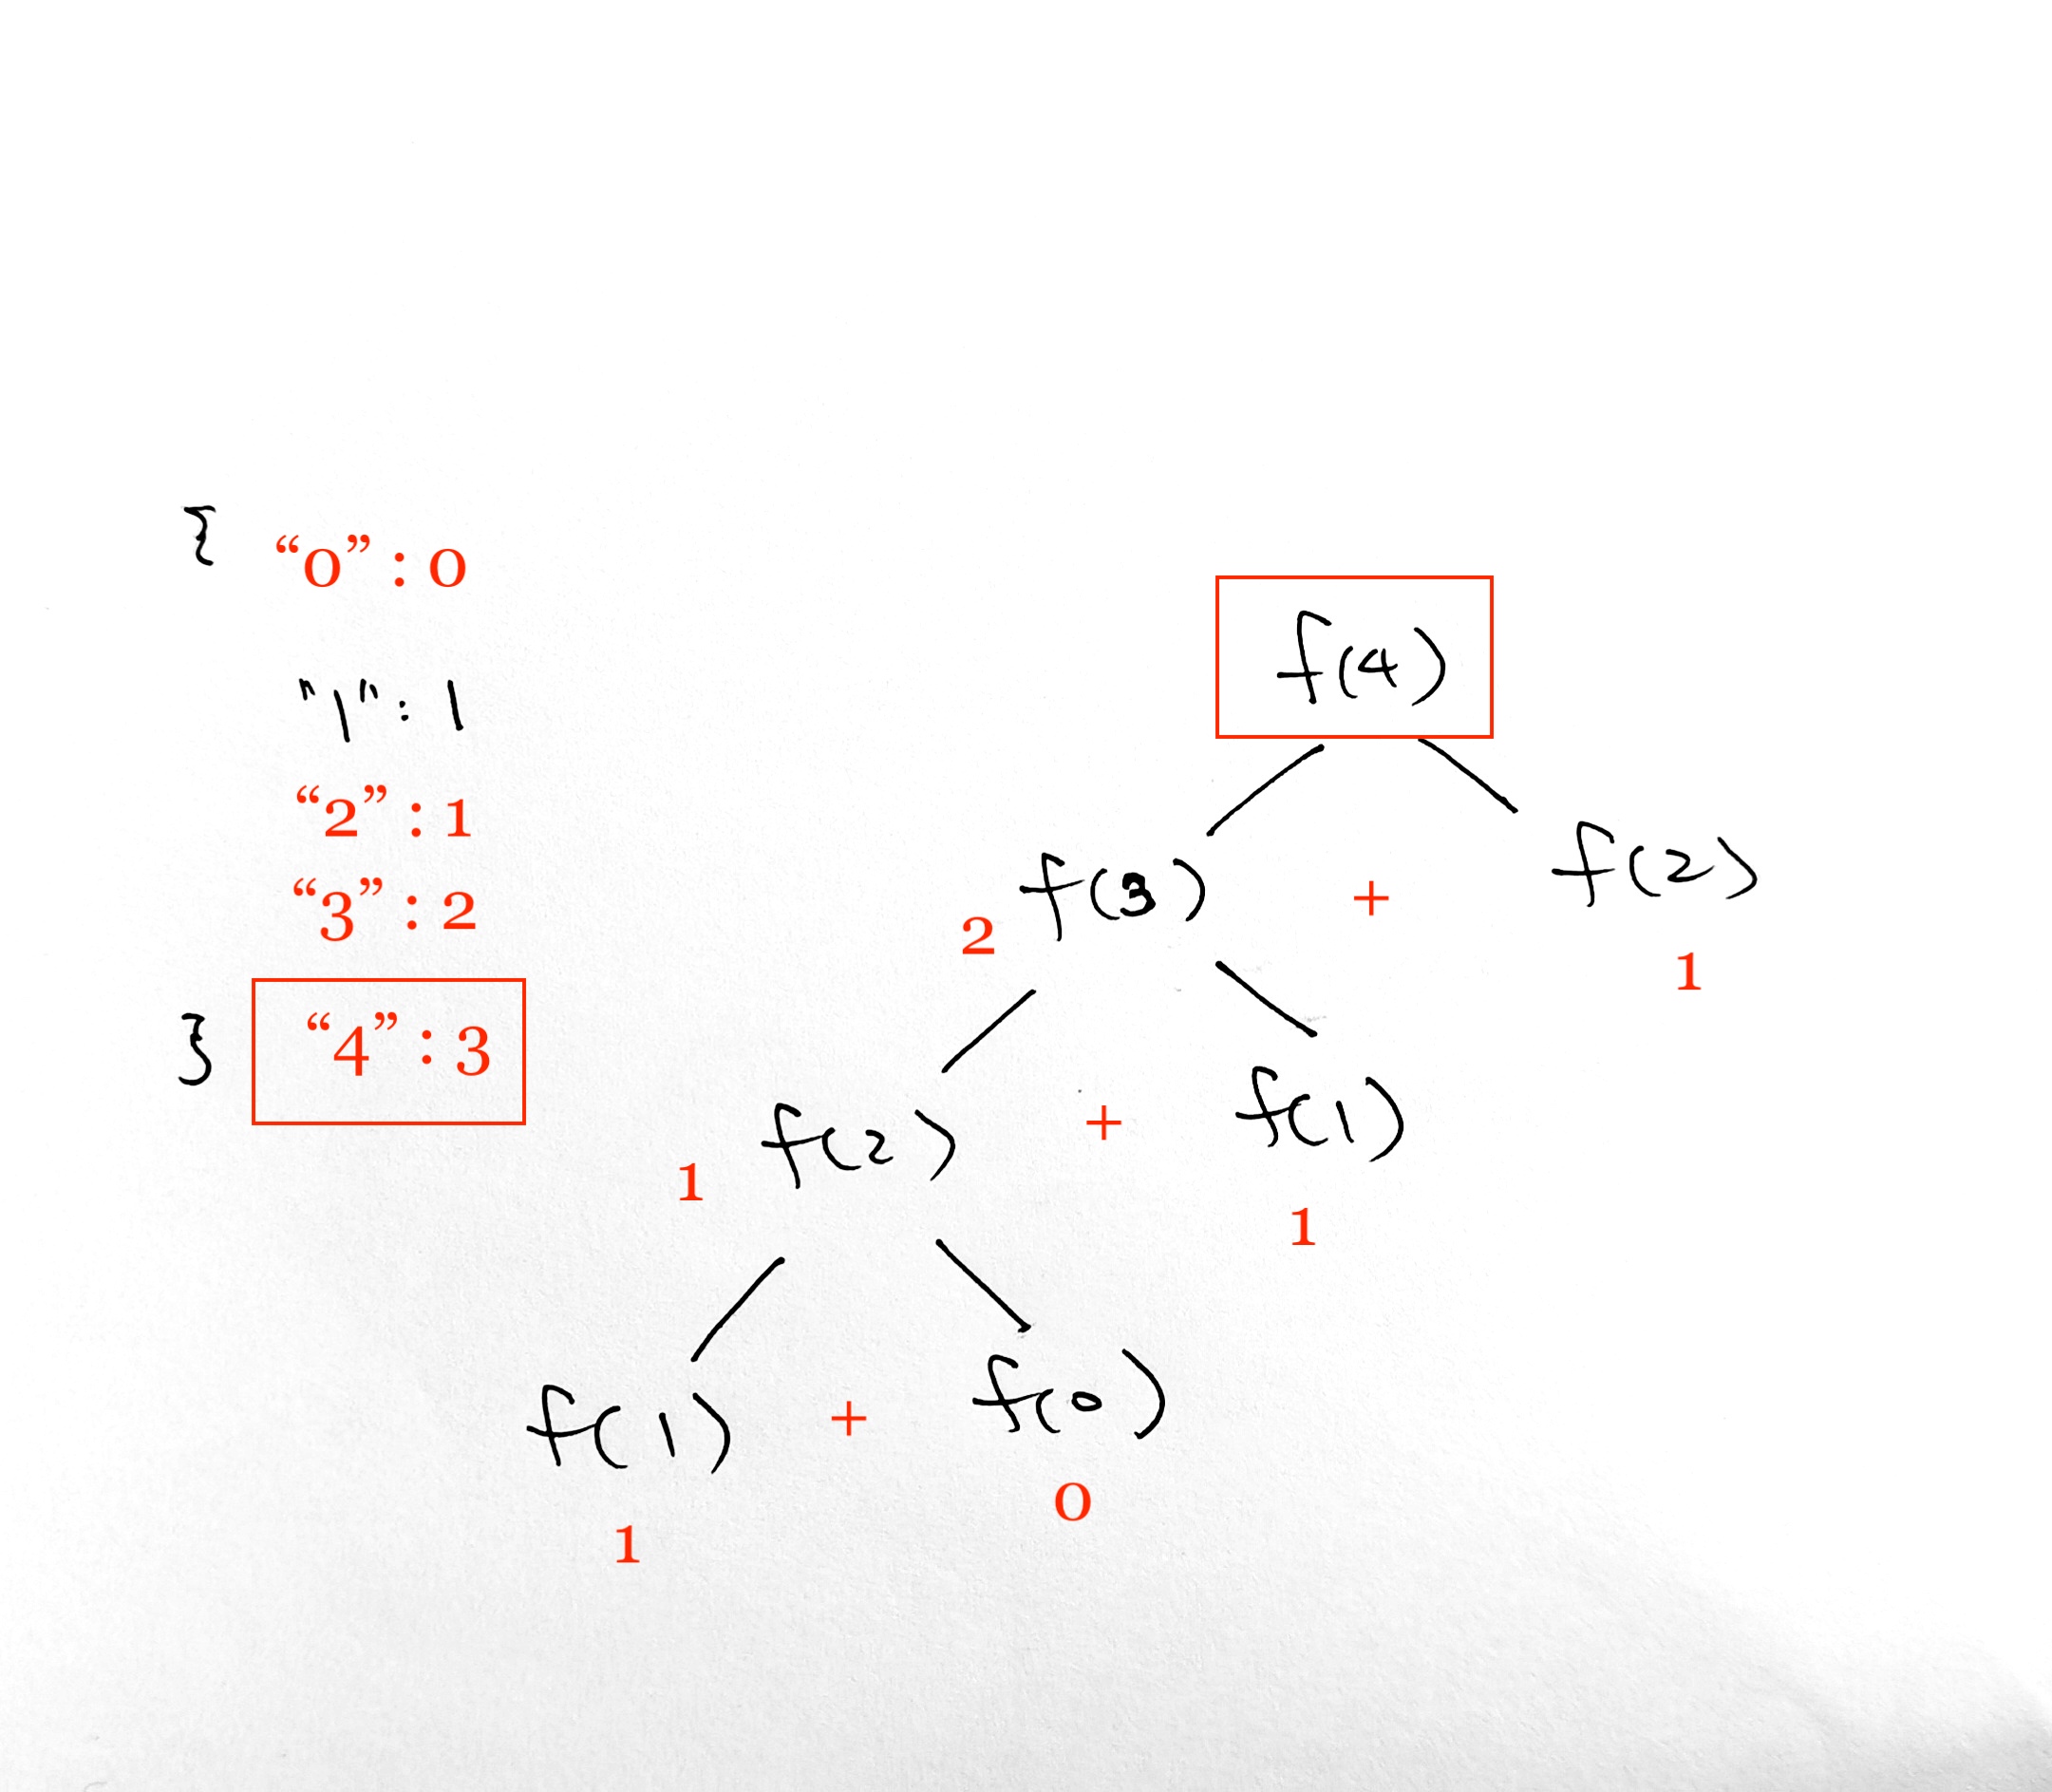 { “0” : 0
"1" : 1
“2” : 1
“3” : 2
} “4” : 3
f(4)
2 f(3) + f(2)
1
1 f(2) + f(1)
1
f(1) + f(0)
1 0